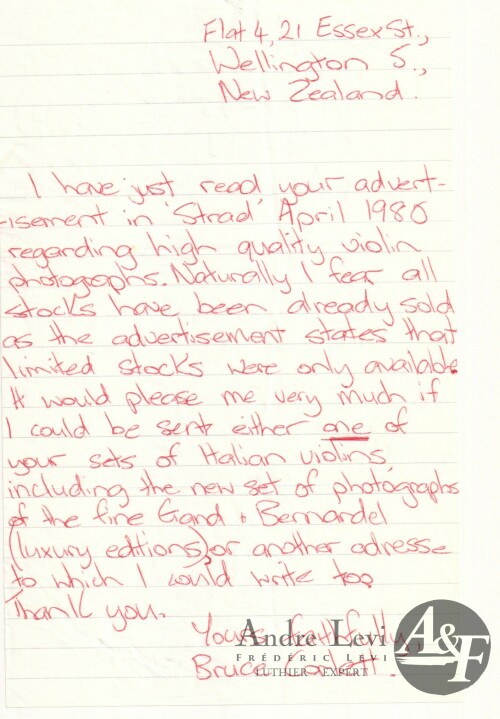 Flat 4, 21 Essex St.,
Wellington 5.,
New Zealand.
I have just read your advert-
-isement in 'Strad' April 1980
regarding high quality violin
photographs. Naturally I fear all
stocks have been already sold
as the advertisement states that
limited stocks were only available.
It would please me very much if
I could be sent either one of
your sets of Italian violins,
including the new set of photographs
of the fine Gand + Bernardel
(luxury edtions), or another adresse
to which I could write too.
Thank you.
Yours faithfully,
Bruce
Andre Levi
FRÉDÉRIC LÉVI
LUTHIER EXPERT
A&F